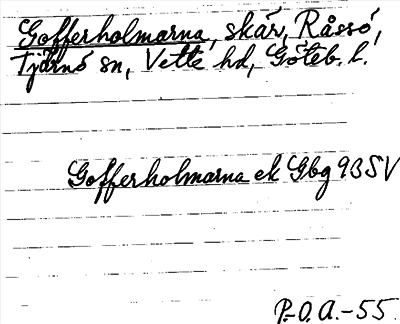 Gofferholmarna, skär, Råssö,
Tjärnö sn, Vette hd, Göteb. l.
Gofferholmarna ek Gbg 9B SV
P.-O. A. -55.